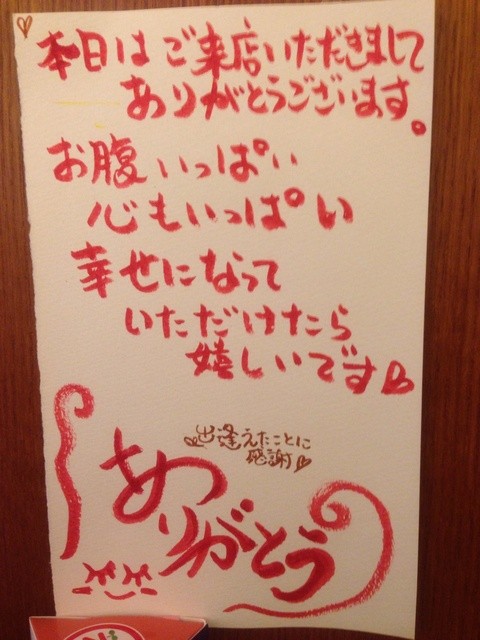 本日はご来店いただきまして
ありがとうございます。
お腹いっぱい
心もいっぱい
幸せになって
いただけたら
嬉しいです
出逢えたことに
感謝
ありがとう